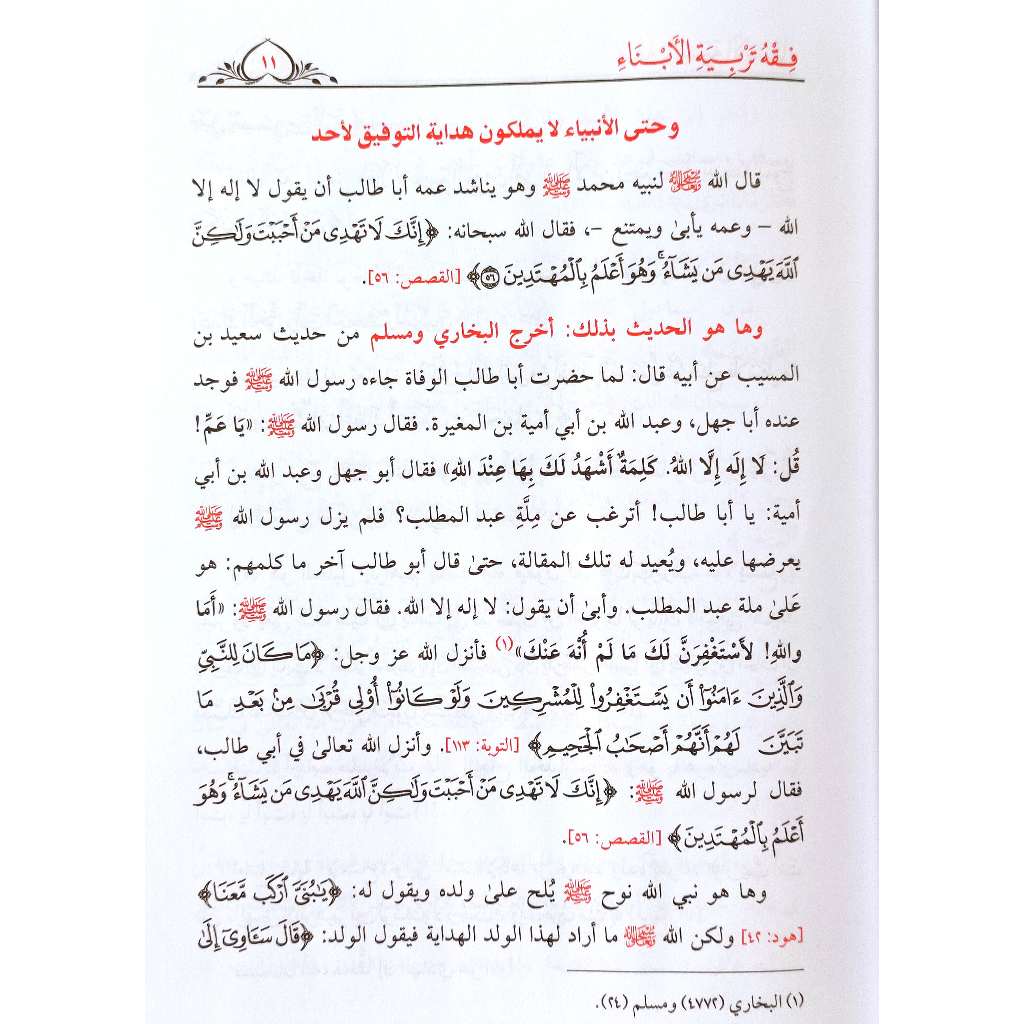 فِقْهُ تَرْبِيَةِ الأَبْنَاءِ
١١
وحتى الأنبياء لا يملكون هداية التوفيق لأحد
قال الله ﷻ لنبيه محمد ﷺ وهو يناشد عمه أبا طالب أن يقول لا إله إلا
الله – وعمه يأبىٰ ويمتنع –، فقال الله سبحانه: ﴿إِنَّكَ لَا تَهْدِى مَنْ أَحْبَبْتَ وَلَٰكِنَّ
ٱللَّهَ يَهْدِى مَن يَشَآءُ ۚ وَهُوَ أَعْلَمُ بِٱلْمُهْتَدِينَ ٥٦﴾ [القصص: ٥٦].
وها هو الحديث بذلك: أخرج البخاري ومسلم من حديث سعيد بن
المسيب عن أبيه قال: لما حضرت أبا طالب الوفاة جاءه رسول الله ﷺ فوجد
عنده أبا جهل، وعبد الله بن أبي أمية بن المغيرة. فقال رسول الله ﷺ: «يَا عَمِّ!
قُل: لَا إِلَه إِلَّا اللهُ. كَلِمَةٌ أَشْهَدُ لَكَ بِهَا عِنْدَ اللهِ» فقال أبو جهل وعبد الله بن أبي
أمية: يا أبا طالب! أترغب عن مِلَّةِ عبد المطلب؟ فلم يزل رسول الله ﷺ
يعرضها عليه، ويُعيد له تلك المقالة، حتىٰ قال أبو طالب آخر ما كلمهم: هو
عَلىٰ ملة عبد المطلب. وأبىٰ أن يقول: لا إله إلا الله. فقال رسول الله ﷺ: «أَمَا
واللهِ! لأَسْتَغْفِرَنَّ لَكَ مَا لَمْ أُنْهَ عَنْكَ»(١) فأنزل الله عز وجل: ﴿مَا كَانَ لِلنَّبِيِّ
وَٱلَّذِينَ ءَامَنُوٓا۟ أَن يَسْتَغْفِرُوا۟ لِلْمُشْرِكِينَ وَلَوْ كَانُوٓا۟ أُو۟لِى قُرْبَىٰ مِنۢ بَعْدِ مَا
تَبَيَّنَ لَهُمْ أَنَّهُمْ أَصْحَٰبُ ٱلْجَحِيمِ﴾ [التوبة: ١١٣]. وأنزل الله تعالىٰ في أبي طالب،
فقال لرسول الله ﷺ: ﴿إِنَّكَ لَا تَهْدِى مَنْ أَحْبَبْتَ وَلَٰكِنَّ ٱللَّهَ يَهْدِى مَن يَشَآءُ ۚ وَهُوَ
أَعْلَمُ بِٱلْمُهْتَدِينَ﴾ [القصص: ٥٦].
وها هو نبي الله نوح ﷺ يُلح علىٰ ولده ويقول له: ﴿يَٰبُنَىَّ ٱرْكَب مَّعَنَا﴾
[هود: ٤٢] ولكن الله ﷻ ما أراد لهذا الولد الهداية فيقول الولد: ﴿قَالَ سَـَٔاوِىٓ إِلَىٰ
(١) البخاري (٤٧٧٢) ومسلم (٢٤).